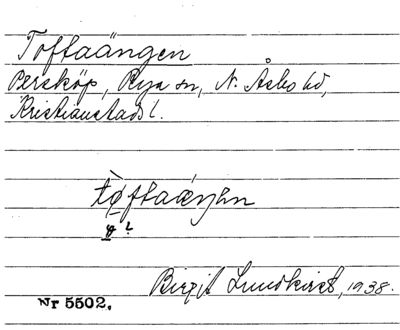 Toftaängen
Persköp, Rya sn, N. Åsbo hd,
Kristianstads l.
Birgit Lundkvist, 1938.
Nr 5502.